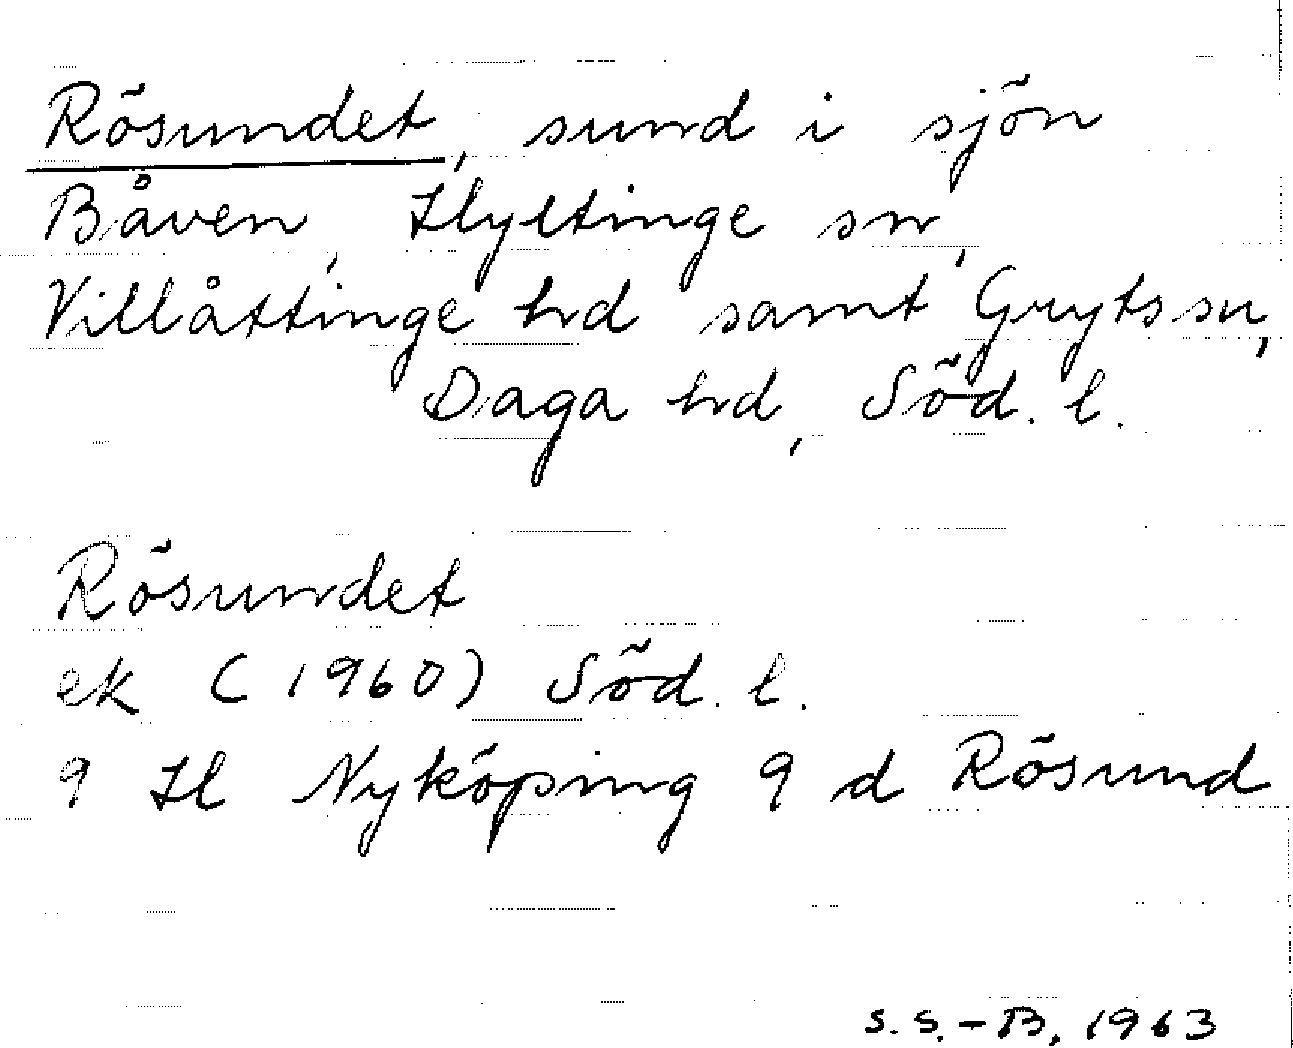 Rösundet, sund i sjön
Båven, Hyltinge sn,
Villåttinge hd samt Gryts sn,
Daga hd, Söd. l.
Rösundet
ek (1960) Söd. l.
9 H Nyköping 9 d Rösund
S. S.-B. 1963